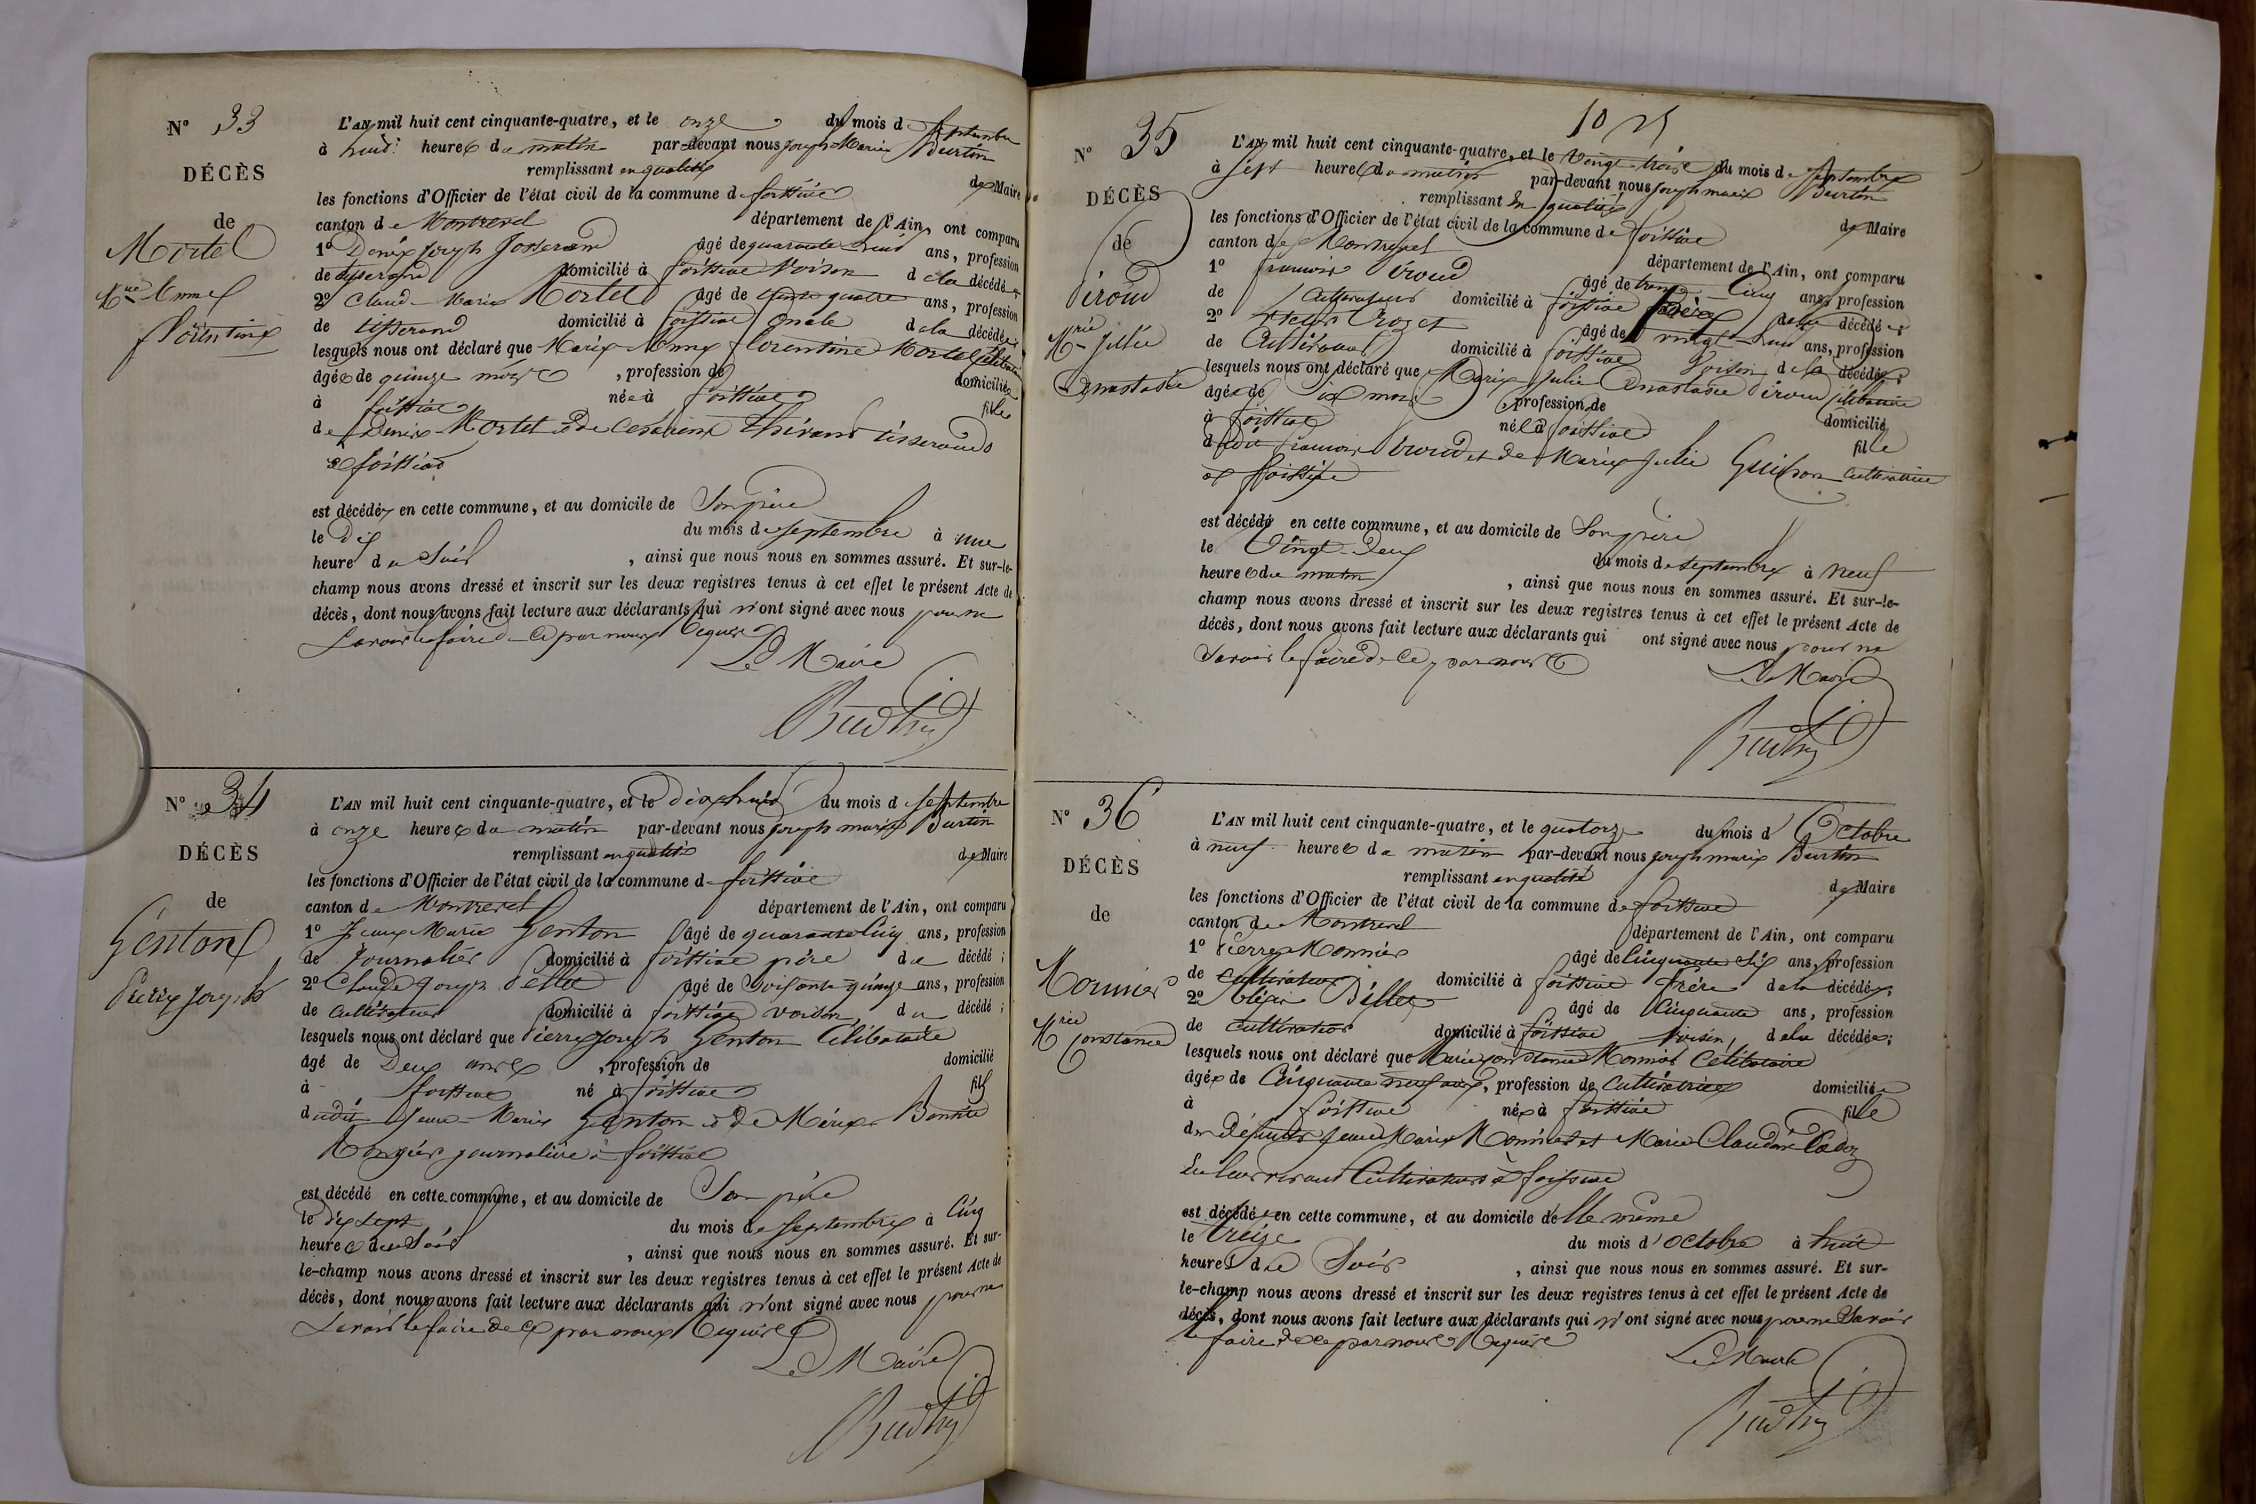 N° 33
DÉCÈS
de
Mortel
Mrie Anne
florentine
L'AN mil huit cent cinquante-quatre, et le onze du mois de septembre
à huit heures du matin par-devant nous joseph Marie Burtin
remplissant en qualité de Maire
les fonctions d'Officier de l'état civil de la commune de foissiat
canton de Montrevel département de l'Ain, ont comparu
1° Denis joseph Josserand âgé de quarante huit ans, profession
de tisserand domicilié à foissiat voisin de la décédée
2° Claude Marie Mortel âgé de trente quatre ans, profession
de tisserand domicilié à foissiat oncle de la décédée
lesquels nous ont déclaré que Marie Anne florentine Mortel célibataire
âgée de quinze mois, profession de domiciliée
à foissiat née à foissiat fille
de Denis Mortel et de Césarine tisserands
à foissiat
est décédée en cette commune, et au domicile de Son père
le dix du mois de septembre à une
heure du Soir, ainsi que nous nous en sommes assuré. Et sur-le-
champ nous avons dressé et inscrit sur les deux registres tenus à cet effet le présent Acte de
décès, dont nous avons fait lecture aux déclarants qui n'ont signé avec nous pour ne
Savoir le faire de ce par nous Requis
Le Maire
Burtin
N° 34
DÉCÈS
de
Genton
Pierre joseph
L'AN mil huit cent cinquante-quatre, et le dix huit du mois de septembre
à onze heures du matin par-devant nous joseph marie Burtin
remplissant en qualité de Maire
les fonctions d'Officier de l'état civil de la commune de foissiat
canton de Montrevel département de l'Ain, ont comparu
1° Jean Marie Genton âgé de quarante cinq ans, profession
de Journalier domicilié à foissiat père du décédé ;
2° Claude joseph Pellet âgé de Soixante quinze ans, profession
de cultivateur domicilié à foissiat voisin du décédé ;
lesquels nous ont déclaré que Pierre joseph Genton Célibataire
âgé de Deux ans, profession de domicilié
à foissiat né à foissiat fils
dudit Jean-Marie Genton et de Marie Benoite
journalière à foissiat
est décédé en cette commune, et au domicile de Son père
le dix sept du mois de septembre à Cinq
heures du Soir, ainsi que nous nous en sommes assuré. Et sur-
le-champ nous avons dressé et inscrit sur les deux registres tenus à cet effet le présent Acte de
décès, dont nous avons fait lecture aux déclarants qui n'ont signé avec nous pour ne
Savoir le faire de ce par nous Requis
Le Maire
Burtin
N° 35
DÉCÈS
de
Piroud
Mrie Julie
Anastasie
L'AN mil huit cent cinquante-quatre, et le Vingt-trois du mois de Septembre
à sept heures du matin par-devant nous joseph marie Burtin
remplissant En qualité de Maire
les fonctions d'Officier de l'état civil de la commune de foissiat
canton de Montrevel département de l'Ain, ont comparu
1° françois Piroud âgé de trente Cinq ans, profession
de Cultivateur domicilié à foissiat père de la décédée ;
2° Crozet âgé de vingt-huit ans, profession
de Cultivateur domicilié à foissiat Voisin de la décédée ;
lesquels nous ont déclaré que Marie Julie Anastasie Piroud Célibataire
âgée de six mois, profession de domiciliée
à foissiat née à foissiat fille
dudit françois Piroud et de Marie Julie cultivatrice
à foissiat
est décédé en cette commune, et au domicile de Son père
le Vingt-Deux du mois de septembre à neuf
heures du matin, ainsi que nous nous en sommes assuré. Et sur-le-
champ nous avons dressé et inscrit sur les deux registres tenus à cet effet le présent Acte de
décès, dont nous avons fait lecture aux déclarants qui ont signé avec nous pour ne
Savoir le faire de ce par nous
Le Maire
Burtin
N° 36
DÉCÈS
de
Monnier
Mrie Constance
L'AN mil huit cent cinquante-quatre, et le quatorze du mois d'Octobre
à neuf heures du matin par-devant nous joseph marie Burtin
remplissant en qualité de Maire
les fonctions d'Officier de l'état civil de la commune de foissiat
canton de Montrevel département de l'Ain, ont comparu
1° Pierre Monnier âgé de Cinquante Six ans, profession
de cultivateur domicilié à foissiat frère de la décédée ;
2° âgé de Cinquante ans, profession
de cultivateur domicilié à foissiat voisin, de la décédée ;
lesquels nous ont déclaré que Marie Constance Monnier Célibataire
âgée de Cinquante neuf ans, profession de Cultivatrice domiciliée
à foissiat née à foissiat fille
de Défunts Jean Marie Monnier et Marie Claudine
En leur vivant Cultivateurs à foissiat
est décédée en cette commune, et au domicile d'Elle même
le treize du mois d'octobre à huit
heures du Soir, ainsi que nous nous en sommes assuré. Et sur-
le-champ nous avons dressé et inscrit sur les deux registres tenus à cet effet le présent Acte de
décès, dont nous avons fait lecture aux déclarants qui n'ont signé avec nous pour ne Savoir
le faire de ce par nous Requis
Le Maire
Burtin